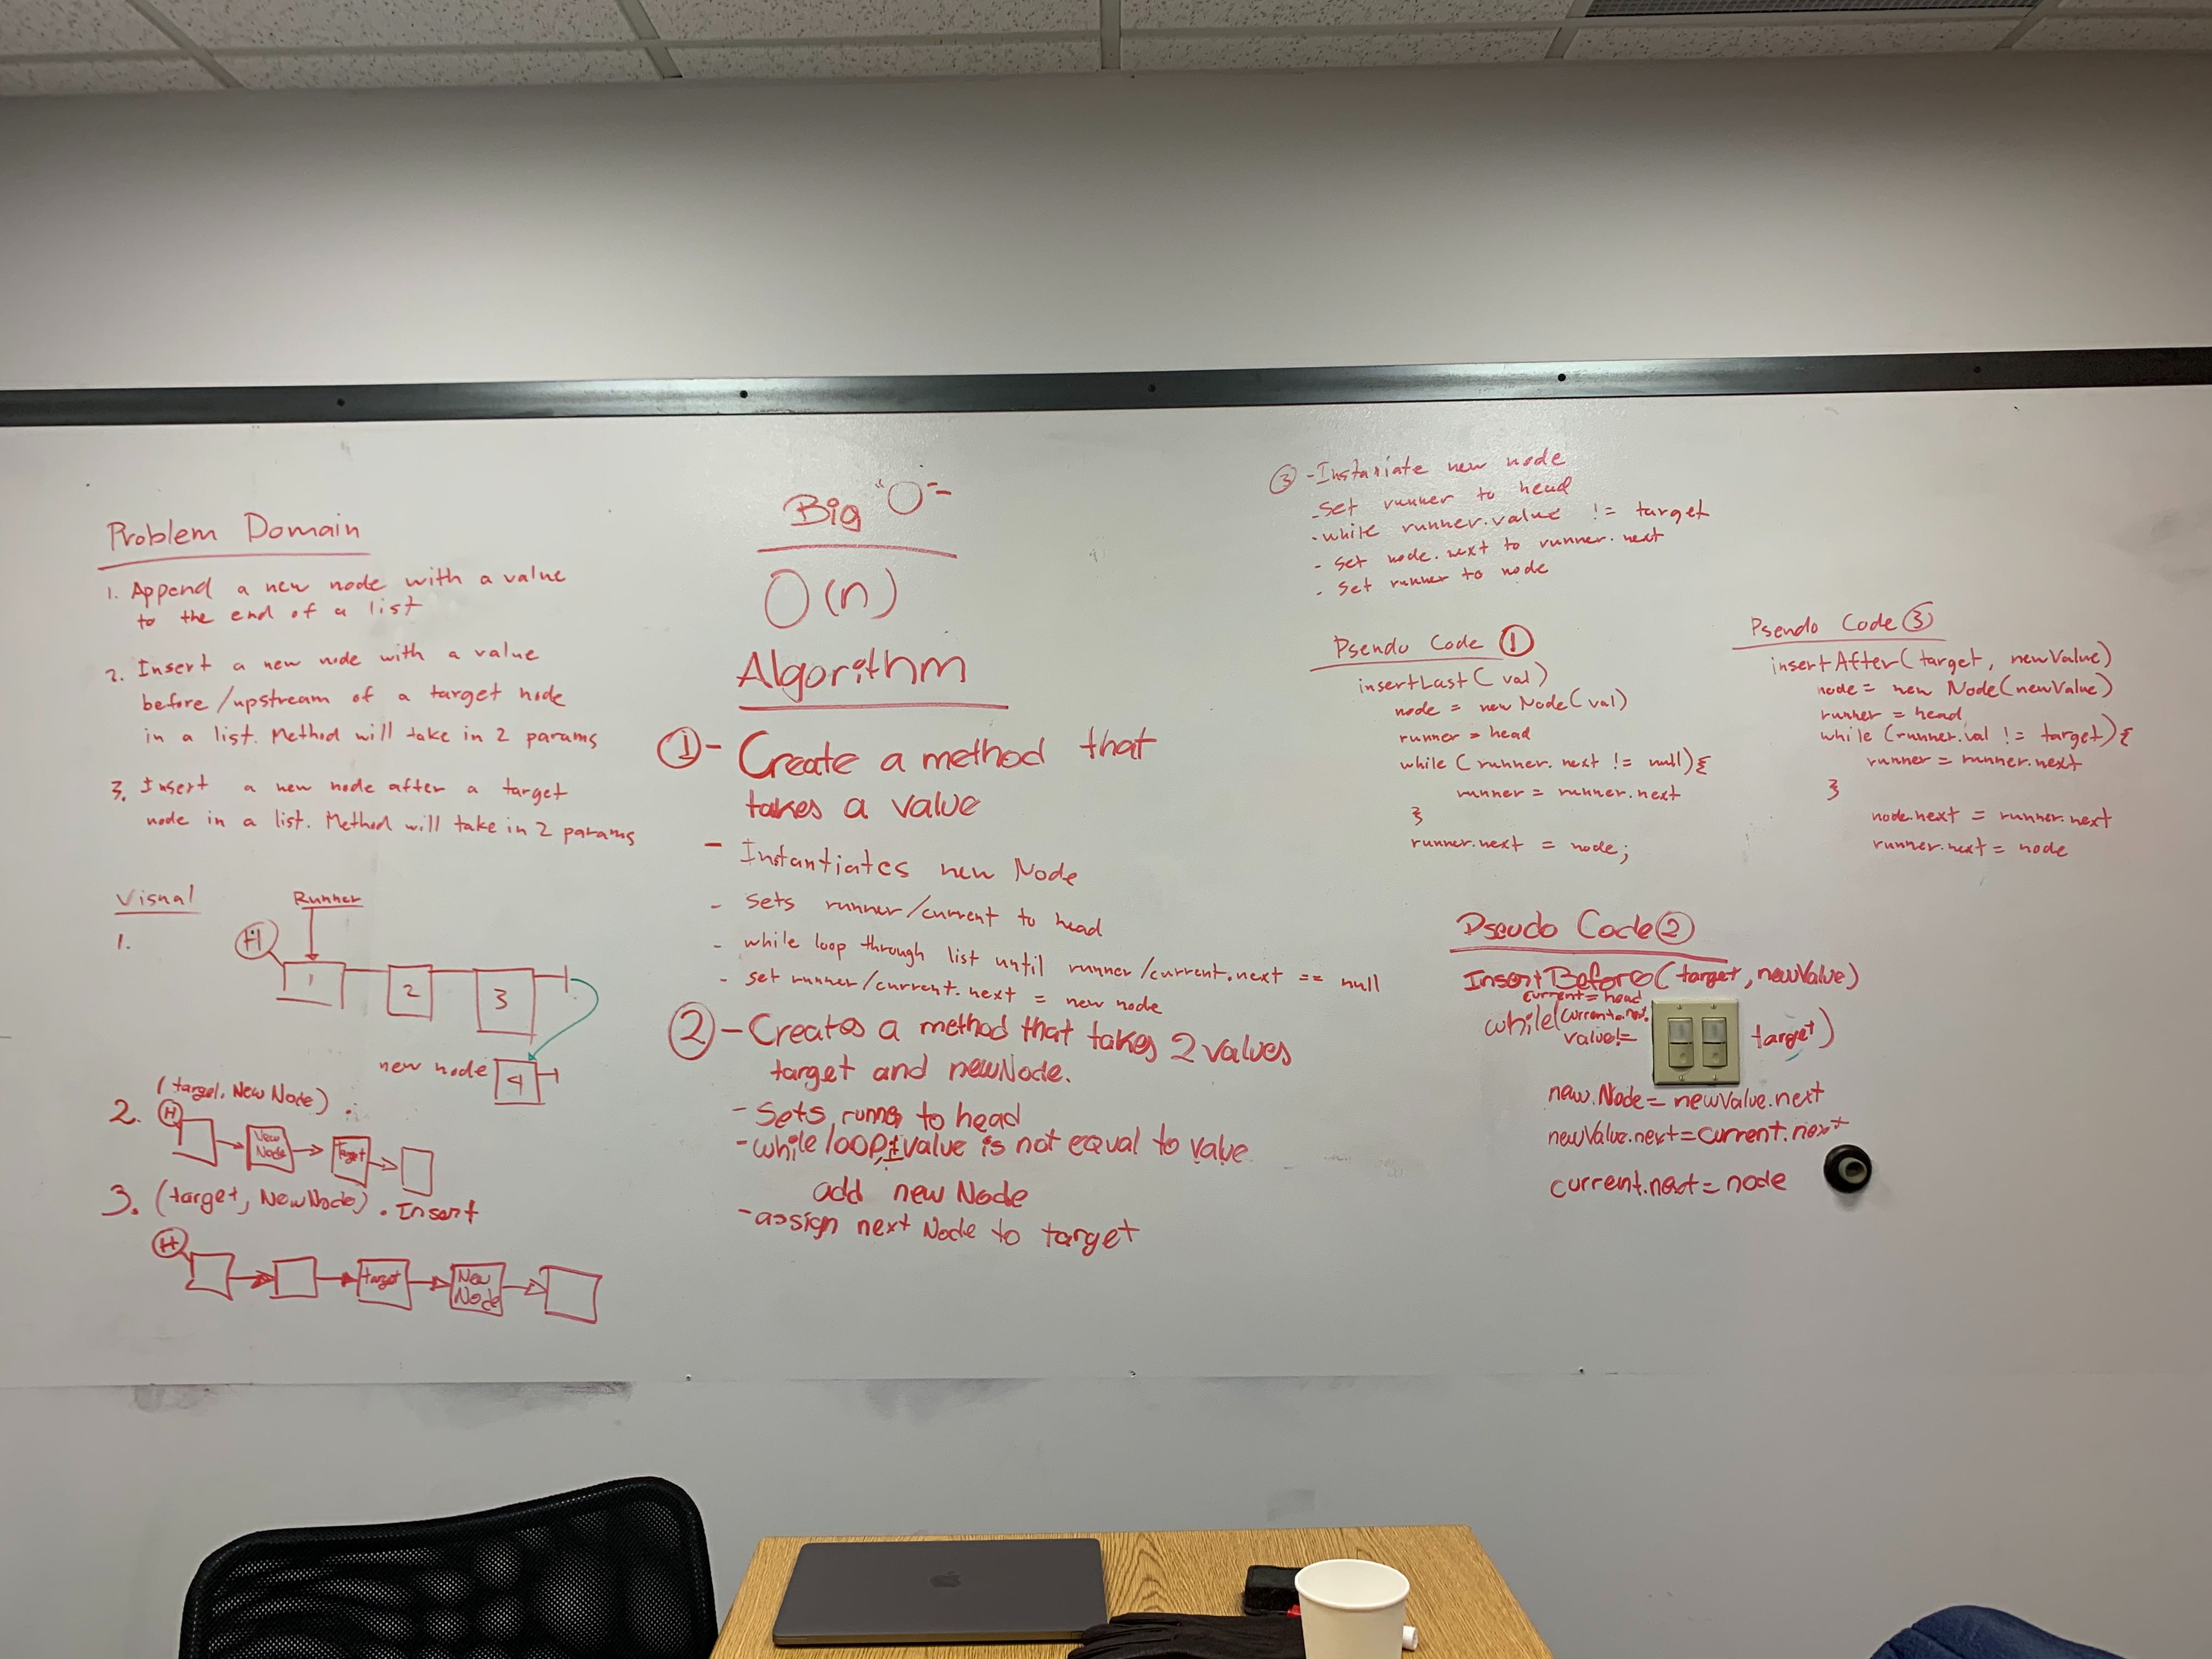 Problem Domain
1. Append a new node with a value
to the end of a list
2. Insert a new node with a value
before/upstream of a target node
in a list. Method will take in 2 params
3. Insert a new node after a target
node in a list. Method will take in 2 params
Visual
1.
Runner
H
1
2
3
new node
4
2.
(target, New Node).
H
New
Node
Target
3. (target, NewNode). Insert
H
target
New
Node
Big "O"
O(n)
Algorithm
① - Create a method that
takes a value
- Instantiates new Node
- sets runner/current to head
- while loop through list until runner/current.next == null
- set runner/current.next = new node
② - Creates a method that takes 2 values
target and newNode.
- Sets runner to head
- while loop, value is not equal to value
add new Node
- assign next Node to target
③ - Instaniate new node
- Set runner to head
- while runner.value != target
- set node.next to runner.next
- Set runner to node
Pseudo Code ①
insertLast(val)
node = new Node(val)
runner = head
while (runner.next != null){
runner = runner.next
}
runner.next = node;
Pseudo Code ③
insertAfter(target, newValue)
node = new Node(newValue)
runner = head
while (runner.val != target){
runner = runner.next
}
node.next = runner.next
runner.next = node
Pseudo Code ②
InsertBefore(target, newValue)
current = head
while(current.next.
value != target)
new.Node = newValue.next
newValue.next = current.next
current.next = node